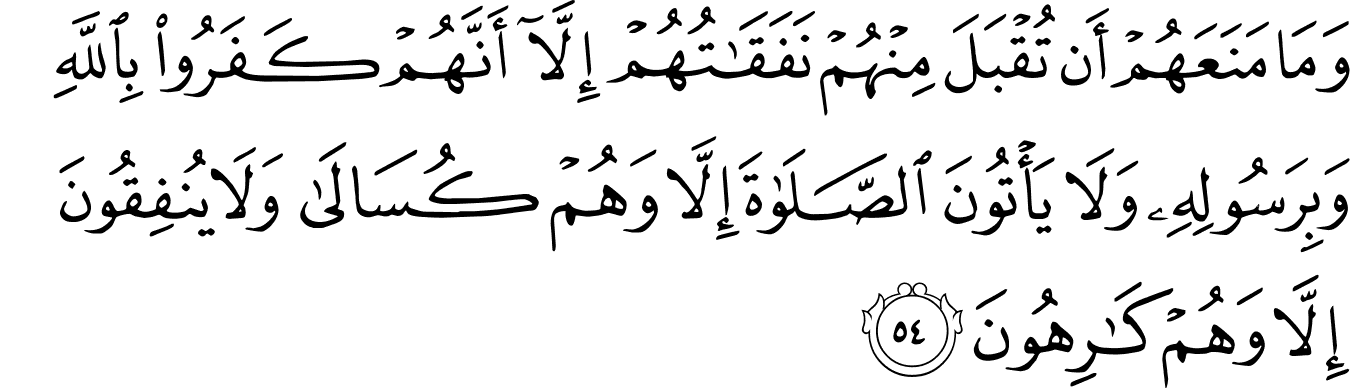 وَمَا مَنَعَهُمْ أَن تُقْبَلَ مِنْهُمْ نَفَقَـٰتُهُمْ إِلَّآ أَنَّهُمْ كَفَرُوا۟ بِٱللَّهِ
وَبِرَسُولِهِۦ وَلَا يَأْتُونَ ٱلصَّلَوٰةَ إِلَّا وَهُمْ كُسَالَىٰ وَلَا يُنفِقُونَ
إِلَّا وَهُمْ كَـٰرِهُونَ ٥٤